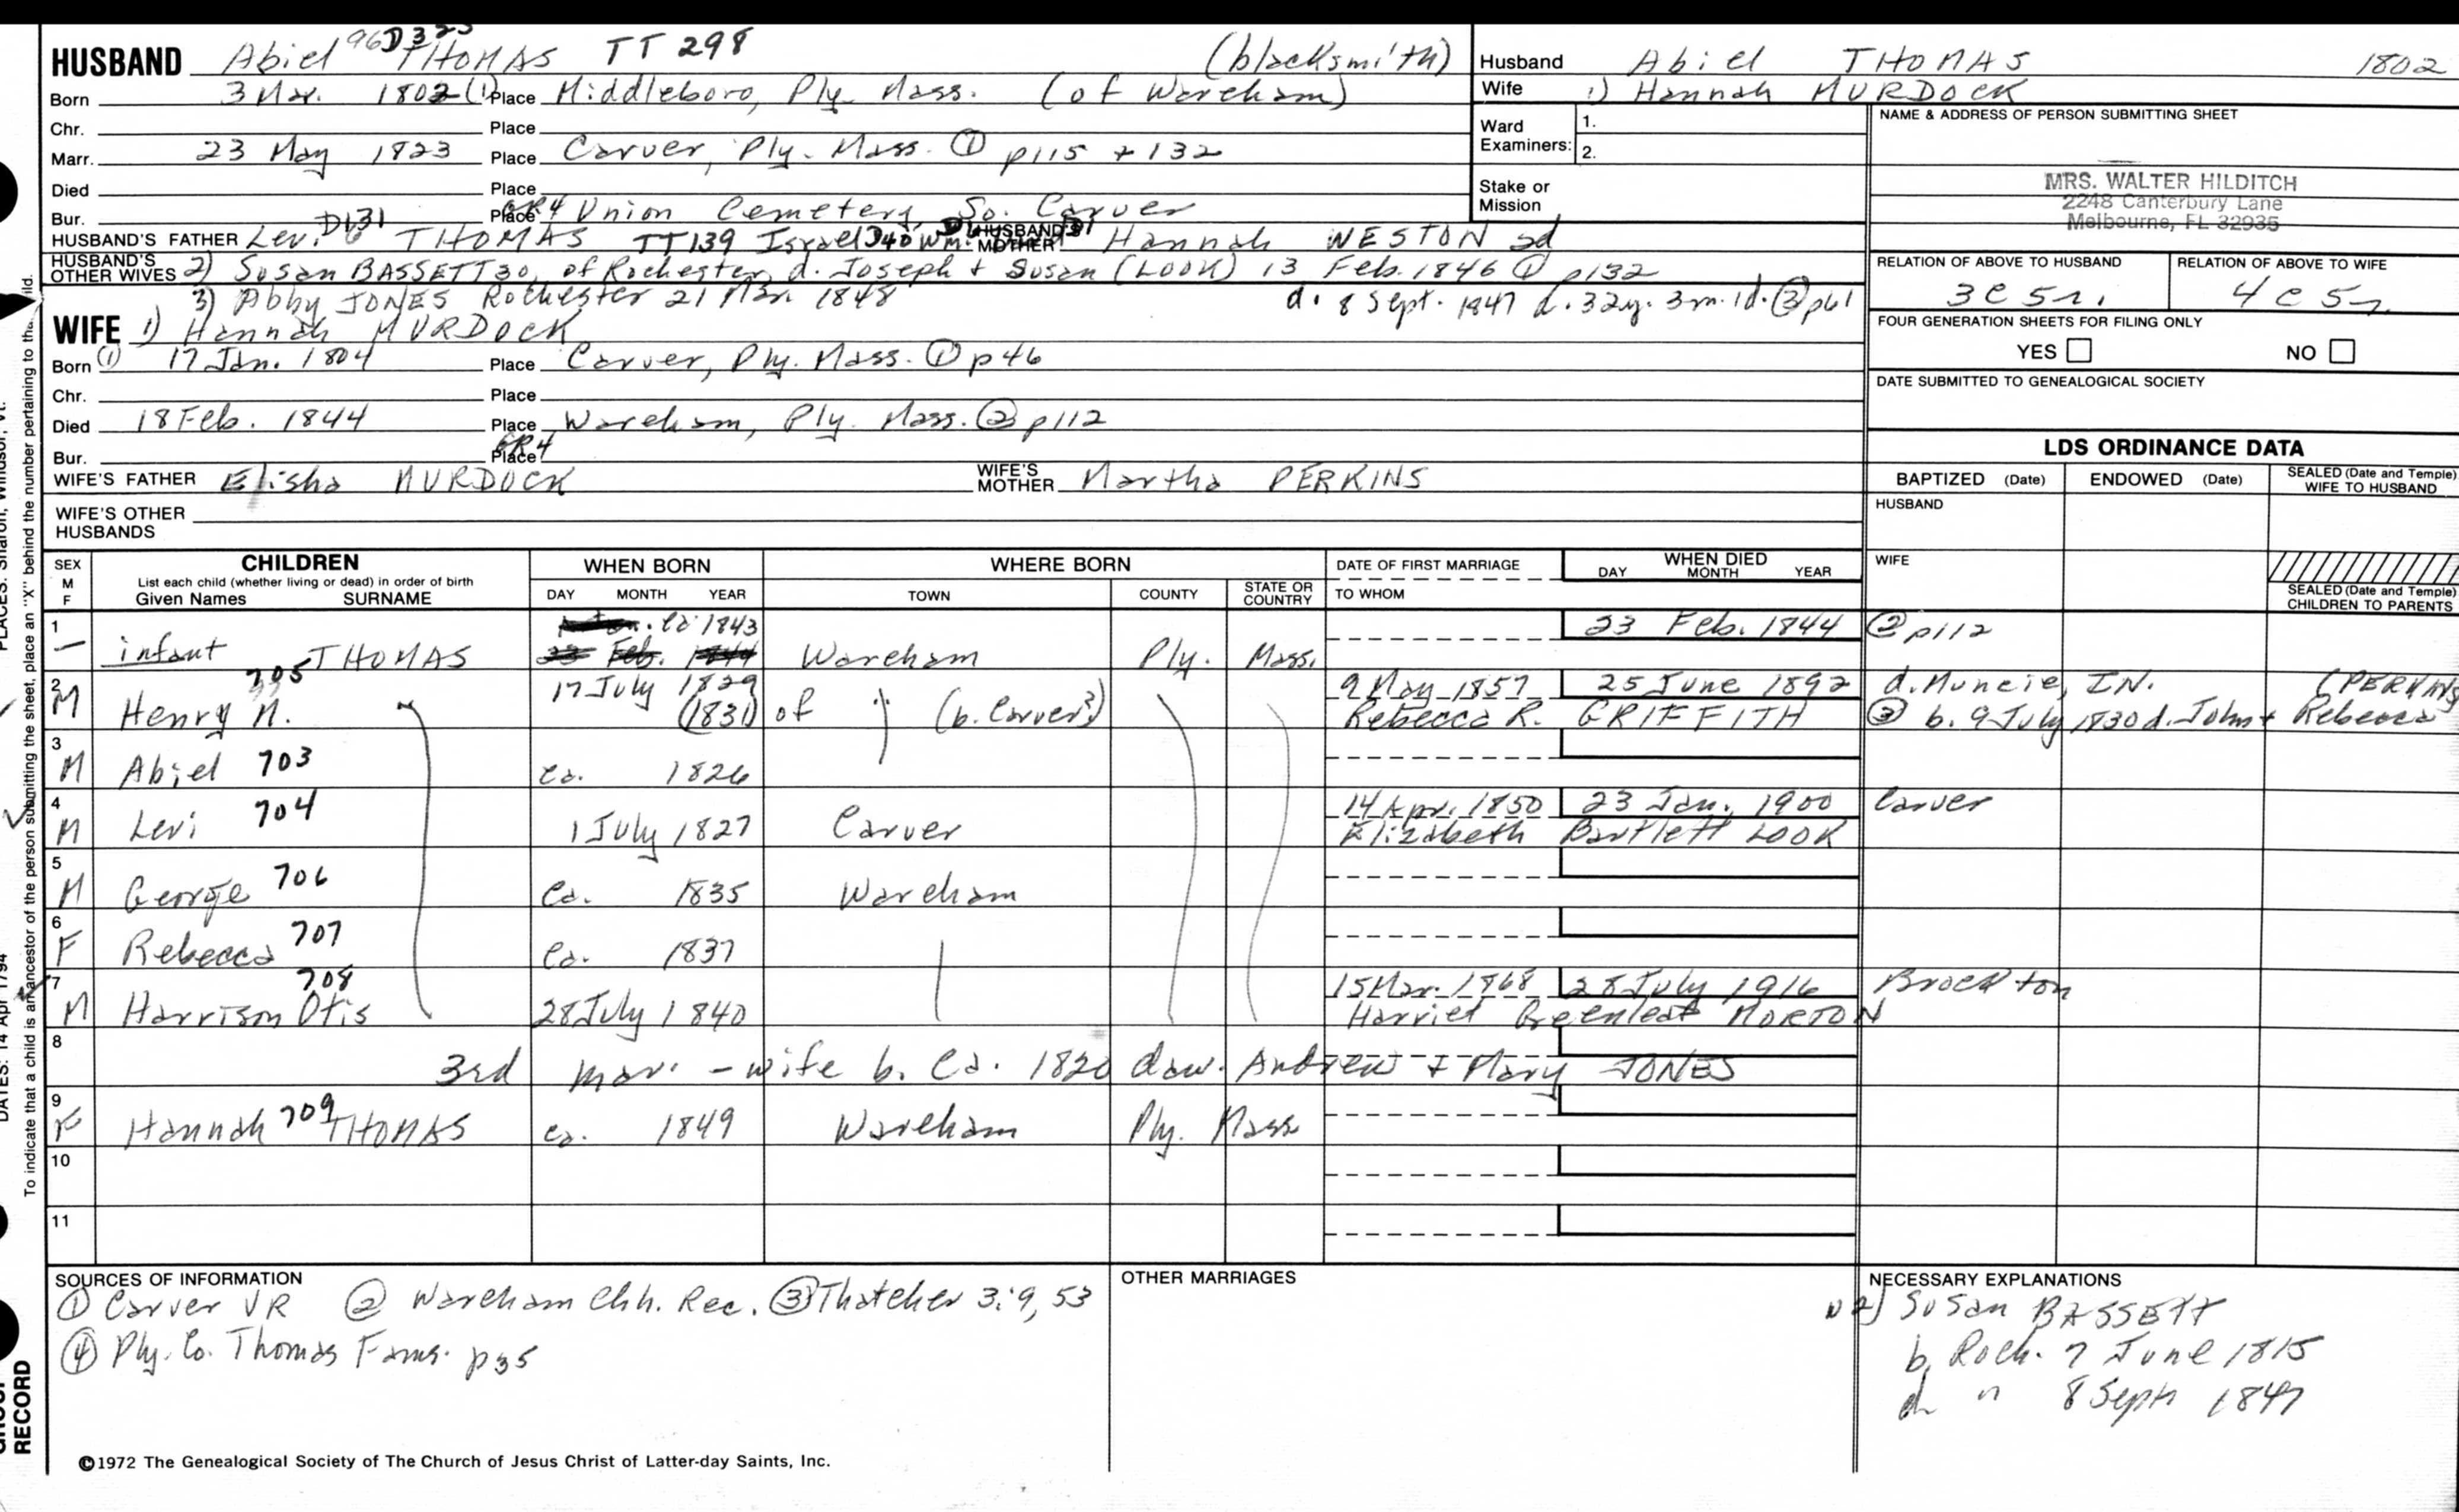 HUSBAND Abiel 96 D325 THOMAS TT 298 (blacksmith)
Born 3 Mar. 1802 (1) Place Middleboro, Ply. Mass. (of Wareham)
Chr. Place
Marr. 23 May 1823 Place Carver, Ply. Mass. ① p115 + 132
Died Place
Bur. Place GR4 Union Cemetery, So. Carver
HUSBAND'S FATHER Levi D131 THOMAS TT139 Israel D40 Wm. HUSBAND'S MOTHER Hannah WESTON 2d
HUSBAND'S OTHER WIVES 2) Susan BASSETT 30, of Rochester, d. Joseph + Susan (LOOK) 13 Feb. 1846 ① p132
3) Abby JONES Rochester 21 Mar. 1848 d. 8 Sept. 1847 d. 32y. 3m. 1d. ③ p61
WIFE 1) Hannah MURDOCK
Born (1) 17 Jan. 1804 Place Carver, Ply. Mass. ① p46
Chr. Place
Died 18 Feb. 1844 Place Wareham, Ply. Mass. ② p112
Bur. Place GR4
WIFE'S FATHER Elisha MURDOCK WIFE'S MOTHER Martha PERKINS
WIFE'S OTHER HUSBANDS
Husband Abiel THOMAS 1802
Wife 1) Hannah MURDOCK
Ward Examiners: 1.
2.
Stake or Mission
NAME & ADDRESS OF PERSON SUBMITTING SHEET
MRS. WALTER HILDITCH
2248 Canterbury Lane
Melbourne, FL 32935
RELATION OF ABOVE TO HUSBAND RELATION OF ABOVE TO WIFE
3c 5r. 4c 5r.
FOUR GENERATION SHEETS FOR FILING ONLY
YES NO
DATE SUBMITTED TO GENEALOGICAL SOCIETY
LDS ORDINANCE DATA
BAPTIZED (Date) ENDOWED (Date) SEALED (Date and Temple) WIFE TO HUSBAND
HUSBAND
WIFE
SEALED (Date and Temple) CHILDREN TO PARENTS
SEX M F CHILDREN List each child (whether living or dead) in order of birth Given Names SURNAME WHEN BORN DAY MONTH YEAR WHERE BORN TOWN COUNTY STATE OR COUNTRY DATE OF FIRST MARRIAGE TO WHOM WHEN DIED DAY MONTH YEAR
1 — infant THOMAS ca 1843 Wareham Ply. Mass. 23 Feb. 1844 ② p112
23 Feb. 1844
2 M Henry M. 705 17 July 1829 (1831) of " (b. Carver?) 9 May 1857 25 June 1892 d. Muncie, IN. (PERKINS)
Rebecca R. GRIFFITH ③ b. 9 July 1830 d. John + Rebecca
3 M Abiel 703 ca. 1826
4 M Levi 704 1 July 1827 Carver 14 Apr. 1850 23 Jan. 1900 Carver
Elizabeth Bartlett LOOK
5 M George 706 ca. 1835 Wareham
6 F Rebecca 707 ca. 1837
7 M Harrison Otis 708 28 July 1840 15 Mar. 1868 28 July 1916 Brockton
Harriet Greenleaf MORTON
8 3rd mar. - wife b. ca. 1820 dau. Andrew + Mary JONES
9 F Hannah 709 THOMAS ca. 1849 Wareham Ply. Mass
10
11
SOURCES OF INFORMATION
① Carver VR ② Wareham Chh. Rec. ③ Thatcher 3:9, 53
④ Ply. Co. Thomas Fams. p35
OTHER MARRIAGES
NECESSARY EXPLANATIONS
2) Susan BASSETT
b. Roch. 7 June 1815
d. " 8 Sept 1847
©1972 The Genealogical Society of The Church of Jesus Christ of Latter-day Saints, Inc.
To indicate that a child is an ancestor of the person submitting the sheet, place an "X" behind the number pertaining to tha child.
PLACES: Sharon, Windsor, Vt.
DATES: 14 Apr 1794
GROUP RECORD